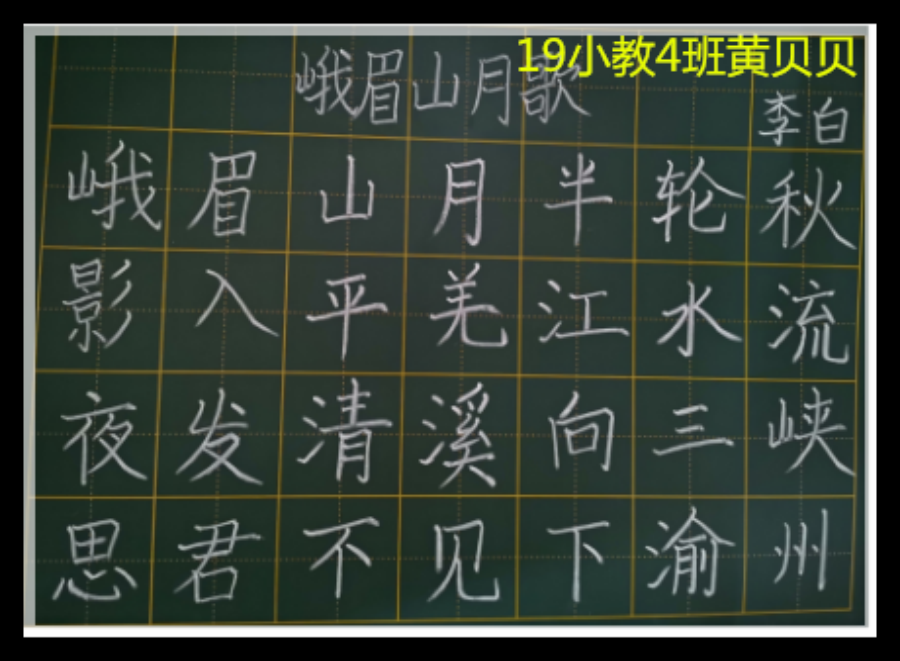 19小教4班黄贝贝
峨眉山月歌
李白
峨眉山月半轮秋
影入平羌江水流
夜发清溪向三峡
思君不见下渝州